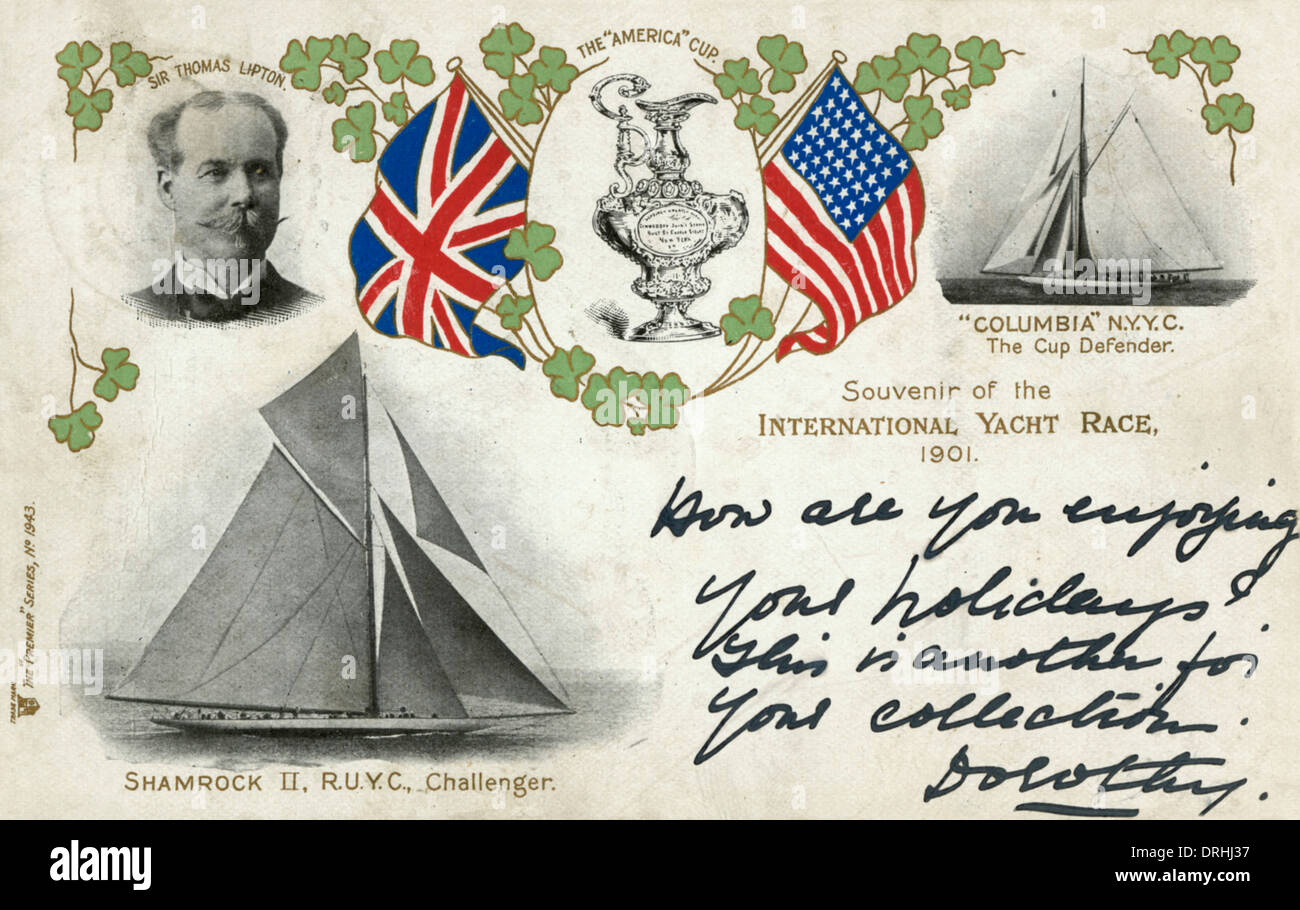 SIR THOMAS LIPTON.
THE "AMERICA" CUP.
"COLUMBIA" N.Y.Y.C.
The Cup Defender.
Souvenir of the
INTERNATIONAL YACHT RACE,
1901.
How are you enjoying
your holidays?
This is another for
your collection.
Dorothy.
SHAMROCK II, R.U.Y.C., Challenger.
THE "PREMIER" SERIES, No 1943.
TRADE MARK
NEW YORK
a alamy stock photo
DRHJ37
www.alamy.com